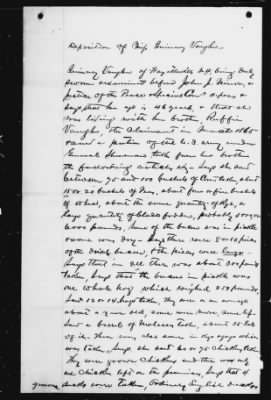 Deposition of Miss Quinney Vaughn.
Quinney Vaughn of Fayetteville N.C. being duly
sworn examined before John J. Minor, a
Justice of the Peace & Special Comr deposes &
says that her age is 46 years, & that she
was living with her brother Ruffin
Vaughn, the Claimant in March 1865
and a portion of the U.S. army under
General Sherman took from her brother
the following articles, viz: Says she said
between 75 and 100 bushels of Corn taken, about
15 or 20 bushels of Peas, about four or five bushels
of Wheat, about the same quantity of Rye, a
large quantity of blade fodder, probably 5000 or
6000 pounds, Some of the bacon was in pickle
some was dry. Says there were 8 or 10 pieces
of the dried bacon, & the pieces were large.
Says that in all there was about 300 pounds
taken, Says that the bacon in pickle was
one whole hog which weighed 250 pounds,
Said 12 or 14 hogs taken, they were on an average
about a year old, some were more, some less.
Saw a barrel of molasses taken, about 35 gals
of it. There was also some in kegs & jugs which
was taken, Says she had 60 or 70 chickens taken
They were grown Chickens and there was only
one Chicken left on the premises, Says that 4
grown ducks were taken Ordinary English Ducks